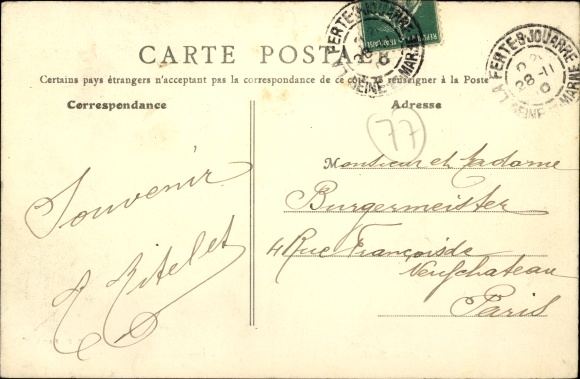 CARTE POSTALE
Certains pays étrangers n'acceptant pas la correspondance de ce côté, se renseigner à la Poste
Correspondance
Adresse
LA FERTE-S-JOUARRE
28-11
SEINE-ET-MARNE
LA FERTE-S-JOUARRE
28-11
SEINE-ET-MARNE
77
Souvenir
Monsieur et Madame
Burgermeister
4 Rue François de
Neufchateau
Paris